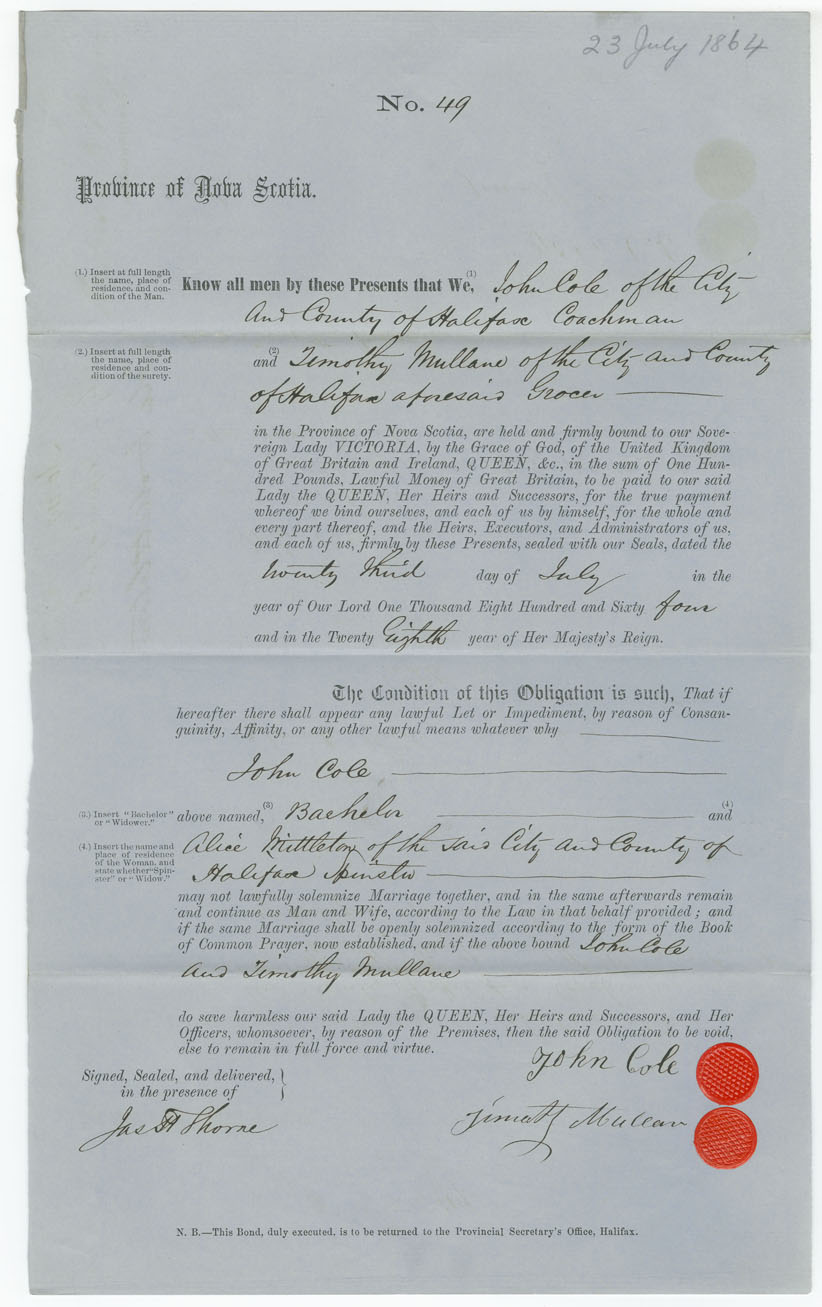 23 July 1864
No. 49
Province of Nova Scotia.
(1.) Insert at full length
the name, place of
residence, and con-
dition of the Man.
Know all men by these Presents that We, (1) John Cole of the City
and County of Halifax Coachman
(2.) Insert at full length
the name, place of
residence and con-
dition of the surety.
and (2) Timothy Mullane of the City and County
of Halifax aforesaid Grocer
in the Province of Nova Scotia, are held and firmly bound to our Sove-
reign Lady VICTORIA, by the Grace of God, of the United Kingdom
of Great Britain and Ireland, QUEEN, &c., in the sum of One Hun-
dred Pounds, Lawful Money of Great Britain, to be paid to our said
Lady the QUEEN, Her Heirs and Successors, for the true payment
whereof we bind ourselves, and each of us by himself, for the whole and
every part thereof, and the Heirs, Executors, and Administrators of us,
and each of us, firmly by these Presents, sealed with our Seals, dated the
twenty third day of July in the
year of Our Lord One Thousand Eight Hundred and Sixty four
and in the Twenty Eighth year of Her Majesty's Reign.
The Condition of this Obligation is such, That if
hereafter there shall appear any lawful Let or Impediment, by reason of Consan-
guinity, Affinity, or any other lawful means whatever why
John Cole
(3.) Insert "Bachelor"
or "Widower."
above named, (3) Bachelor and (4)
(4.) Insert the name and
place of residence
of the Woman, and
state whether "Spin-
ster" or "Widow."
Alice Mittleton of the said City and County of
Halifax Spinster
may not lawfully solemnize Marriage together, and in the same afterwards remain
and continue as Man and Wife, according to the Law in that behalf provided; and
if the same Marriage shall be openly solemnized according to the form of the Book
of Common Prayer, now established, and if the above bound John Cole
and Timothy Mullane
do save harmless our said Lady the QUEEN, Her Heirs and Successors, and Her
Officers, whomsoever, by reason of the Premises, then the said Obligation to be void,
else to remain in full force and virtue.
John Cole
Signed, Sealed, and delivered, }
in the presence of
Jas H Thorne
Timothy Mullane
N. B.—This Bond, duly executed, is to be returned to the Provincial Secretary's Office, Halifax.